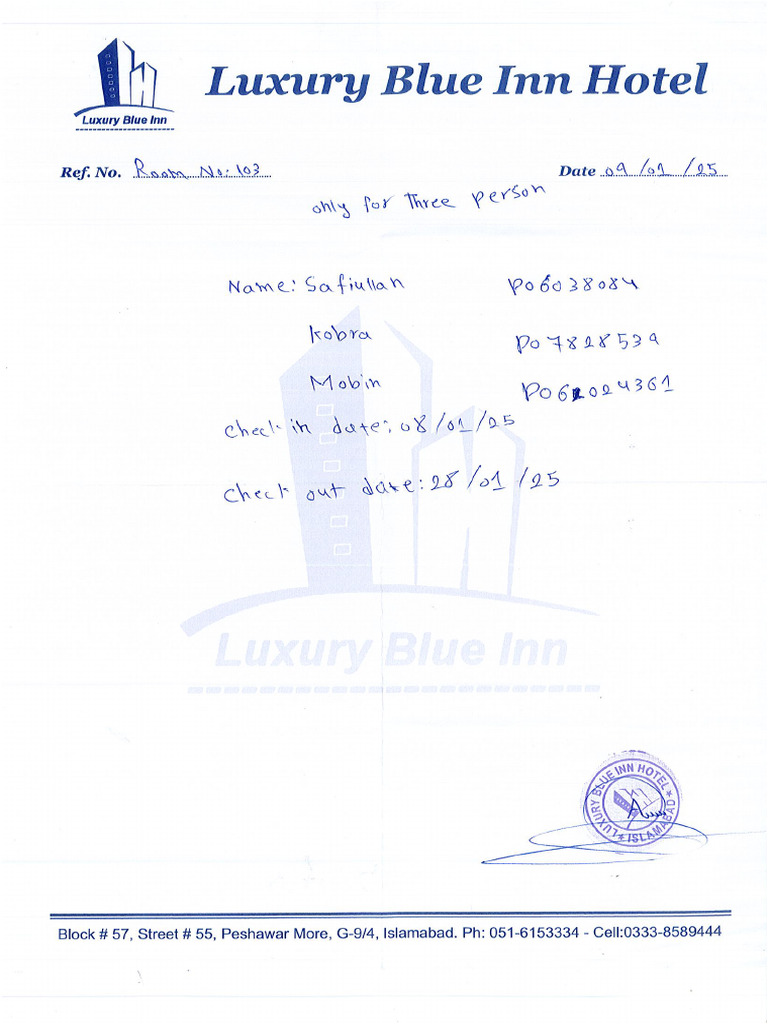 Luxury Blue Inn
Luxury Blue Inn Hotel
Ref. No. Room No: 103 Date 09/01/25
only for Three person
Name: Safiullah P06038084
Kobra P07828539
Mobin P061024361
Check in date: 08/01/25
Check out date: 28/01/25
Luxury Blue Inn
LUXURY BLUE INN HOTEL
ISLAMABAD
Block # 57, Street # 55, Peshawar More, G-9/4, Islamabad. Ph: 051-6153334 - Cell:0333-8589444